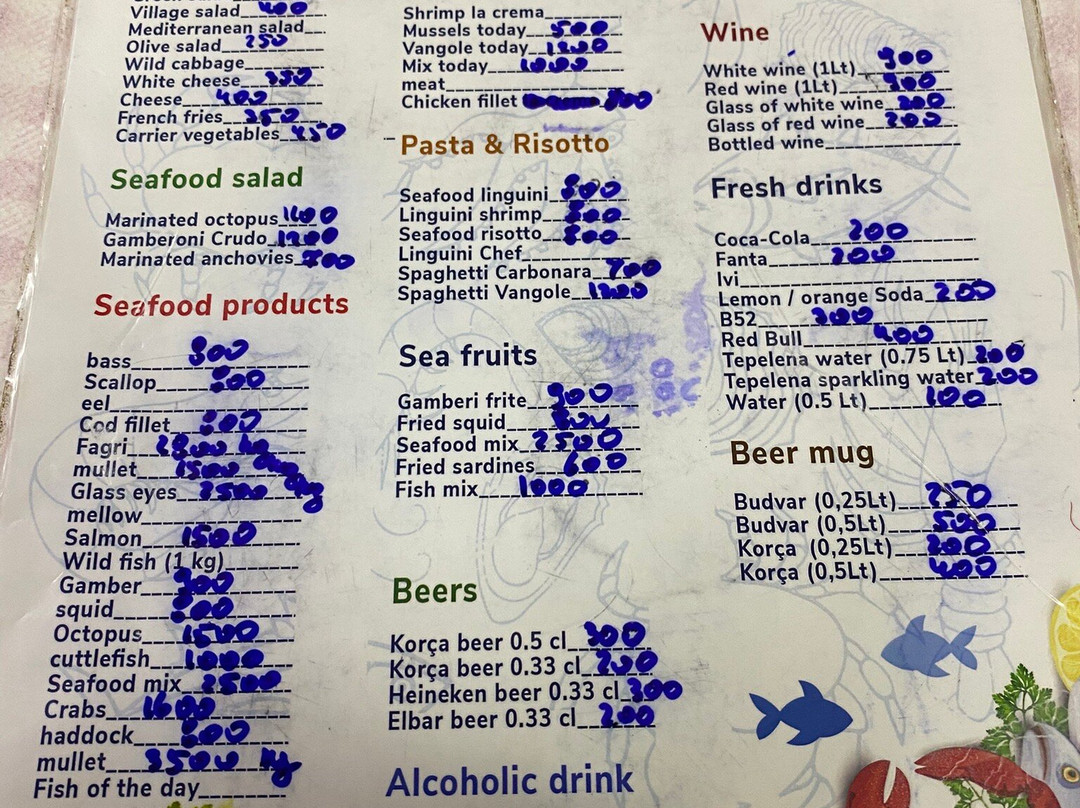 Village salad 400
Mediterranean salad
Olive salad 250
Wild cabbage
White cheese 350
Cheese 400
French fries 250
Carrier vegetables 450
Seafood salad
Marinated octopus 1400
Gamberoni Crudo 1200
Marinated anchovies 700
Seafood products
bass 800
Scallop 800
eel
Cod fillet 800
Fagri 2800 kg
mullet 1500
Glass eyes 2500 kg
mellow
Salmon 1500
Wild fish (1 kg)
Gamber 900
squid 800
Octopus 1500
cuttlefish 1000
Seafood mix 2500
Crabs 1600
haddock 800
mullet 3500 kg
Fish of the day
Shrimp la crema
Mussels today 500
Vangole today 1200
Mix today 1000
meat
Chicken fillet 500
Pasta & Risotto
Seafood linguini 800
Linguini shrimp 800
Seafood risotto 800
Linguini Chef
Spaghetti Carbonara 700
Spaghetti Vangole 1200
Sea fruits
Gamberi frite 900
Fried squid 800
Seafood mix 2500
Fried sardines 600
Fish mix 1000
Beers
Korça beer 0.5 cl 300
Korça beer 0.33 cl 200
Heineken beer 0.33 cl 300
Elbar beer 0.33 cl 200
Alcoholic drink
Wine
White wine (1Lt) 900
Red wine (1Lt) 900
Glass of white wine 200
Glass of red wine 200
Bottled wine
Fresh drinks
Coca-Cola 200
Fanta 200
Ivi
Lemon / orange Soda 200
B52 300
Red Bull 400
Tepelena water (0.75 Lt) 200
Tepelena sparkling water 200
Water (0.5 Lt) 100
Beer mug
Budvar (0,25Lt) 250
Budvar (0,5Lt) 500
Korça (0,25Lt) 200
Korça (0,5Lt) 400